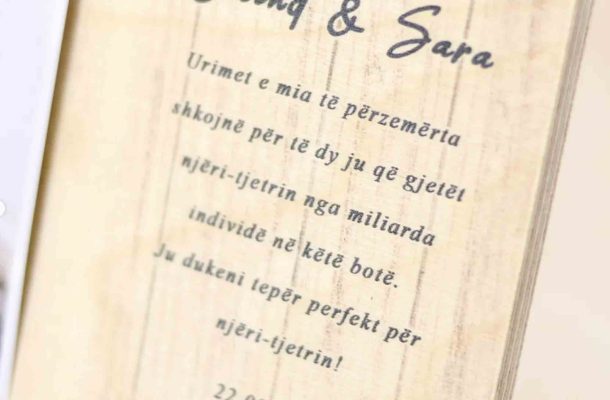 & Sara
Urimet e mia të përzemërta
shkojnë për të dy ju që gjetët
njëri-tjetrin nga miliarda
individë në këtë botë.
Ju dukeni tepër perfekt për
njëri-tjetrin!
22